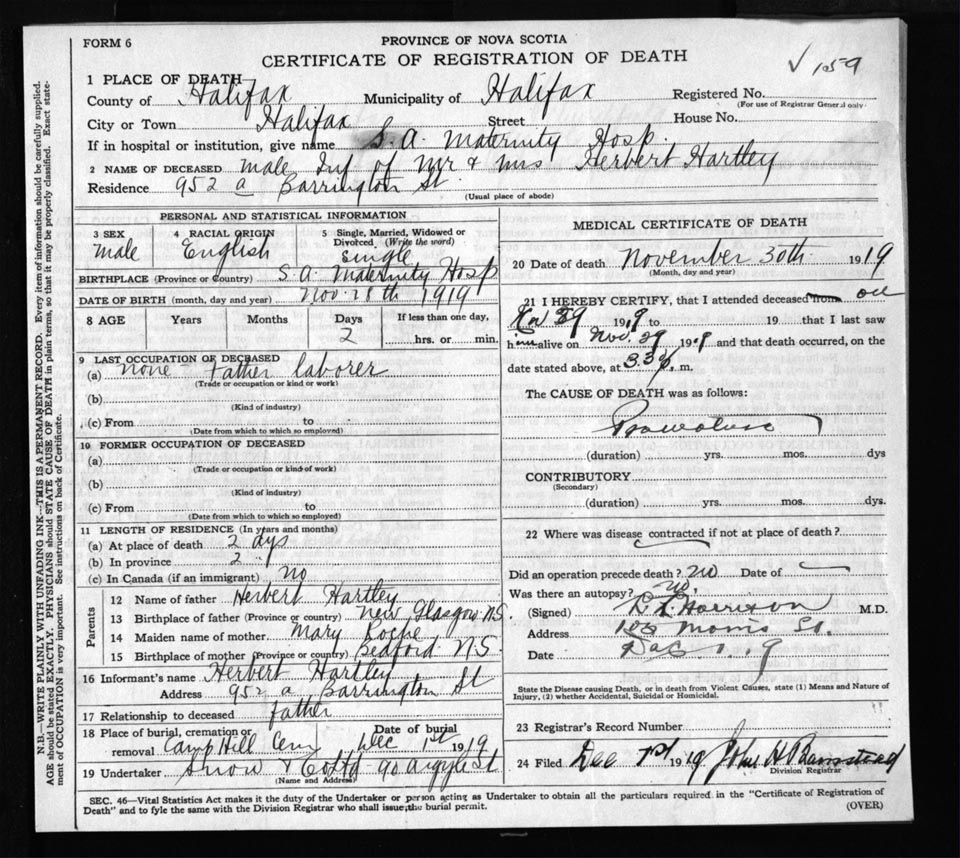 FORM 6
PROVINCE OF NOVA SCOTIA
CERTIFICATE OF REGISTRATION OF DEATH
√ 159
1 PLACE OF DEATH
County of Halifax Municipality of Halifax Registered No.
(For use of Registrar General only.
City or Town Halifax Street House No.
If in hospital or institution, give name S. A. Maternity Hosp.
2 NAME OF DECEASED male Inf of Mr & Mrs Herbert Hartley
Residence 952 a Barrington St.
(Usual place of abode)
PERSONAL AND STATISTICAL INFORMATION
3 SEX male
4 RACIAL ORIGIN English
5 Single, Married, Widowed or Divorced. (Write the word) single
BIRTHPLACE (Province or Country) S. A. Maternity Hosp
DATE OF BIRTH (month, day and year) Nov. 28th 1919
8 AGE Years Months Days 2 If less than one day, hrs. or min.
9 LAST OCCUPATION OF DECEASED
(a) none - Father laborer
(Trade or occupation or kind or work)
(b)
(Kind of industry)
(c) From to
(Date from which to which so employed)
10 FORMER OCCUPATION OF DECEASED
(a)
(Trade or occupation or kind or work)
(b)
(Kind of industry)
(c) From to
(Date from which to which so employed)
11 LENGTH OF RESIDENCE (In years and months)
(a) At place of death 2 dys
(b) In province 2 "
(c) In Canada (if an immigrant) no
Parents
12 Name of father Herbert Hartley
13 Birthplace of father (Province or country) New Glasgow N.S.
14 Maiden name of mother Mary
15 Birthplace of mother (Province or country) Bedford N.S.
16 Informant's name Herbert Hartley
Address 952 a Barrington St
17 Relationship to deceased father
18 Place of burial, cremation or removal Camp Hill Cem Date of burial Dec 1st 1919
19 Undertaker Snow & Co Ltd 90 Argyle St
(Name and Address)
MEDICAL CERTIFICATE OF DEATH
20 Date of death November 30th 1919
(Month, day and year)
21 I HEREBY CERTIFY, that I attended deceased from on
Nov 29 1919 to 19 that I last saw
him alive on Nov. 29 1919 and that death occurred, on the
date stated above, at 3.30 p.m.
The CAUSE OF DEATH was as follows:
Premature
(duration) yrs. mos. dys
CONTRIBUTORY
(Secondary)
(duration) yrs. mos. dys.
22 Where was disease contracted if not at place of death?
Did an operation precede death? No Date of
Was there an autopsy? No.
(Signed) Morrison M.D.
Address Morris St.
Date Dec 1. 19
State the Disease causing Death, or in death from Violent Causes, state (1) Means and Nature of
Injury, (2) whether Accidental, Suicidal or Homicidal.
23 Registrar's Record Number
24 Filed Dec 1st 1919 John H Barnstead
Division Registrar
SEC. 46—Vital Statistics Act makes it the duty of the Undertaker or person acting as Undertaker to obtain all the particulars required in the "Certificate of Registration of
Death" and to fyle the same with the Division Registrar who shall issue the burial permit.
(OVER)
N.B.—WRITE PLAINLY WITH UNFADING INK—THIS IS A PERMANENT RECORD. Every item of information should be carefully supplied.
AGE should be stated EXACTLY. PHYSICIANS should STATE CAUSE OF DEATH in plain terms, so that it may be properly classified. Exact state-
ment of OCCUPATION is very important. See instructions on back of Certificate.